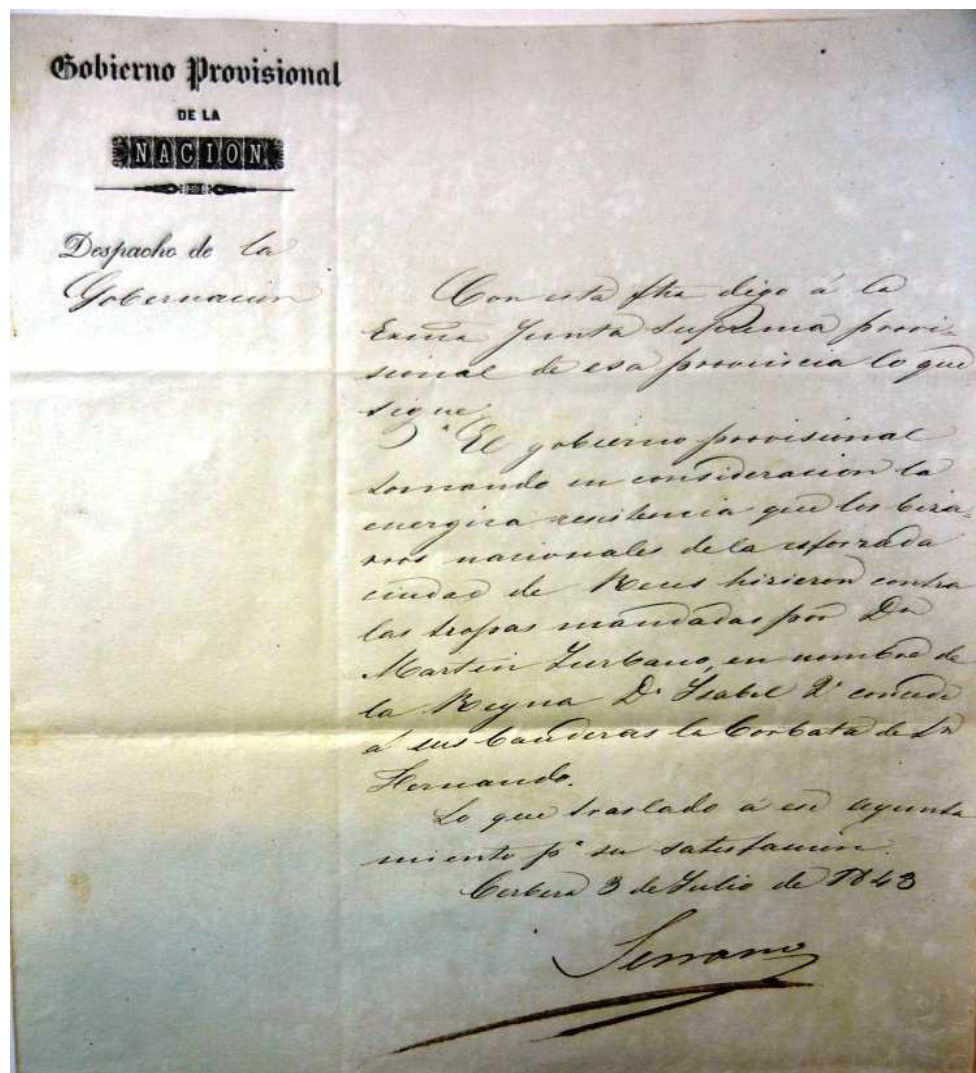 Gobierno Provisional
DE LA
NACION
Despacho de la
Gobernacion
Con esta fha digo á la
Exma Junta suprema provi-
sional de esa provincia lo que
sigue
"El gobierno provisional
tomando en consideracion la
energica resistencia que los biza-
rros nacionales de la esforzada
ciudad de Reus hisieron contra
las tropas mandadas por Dn
Martin Zurbano, en nombre de
la Reyna Da Ysabel 2a concede
á sus banderas la Corbata de Sn
Fernando.
Lo que traslado á ese ayunta
miento pa su satisfacion.
Cerbera 3 de Julio de 1843
Serrano